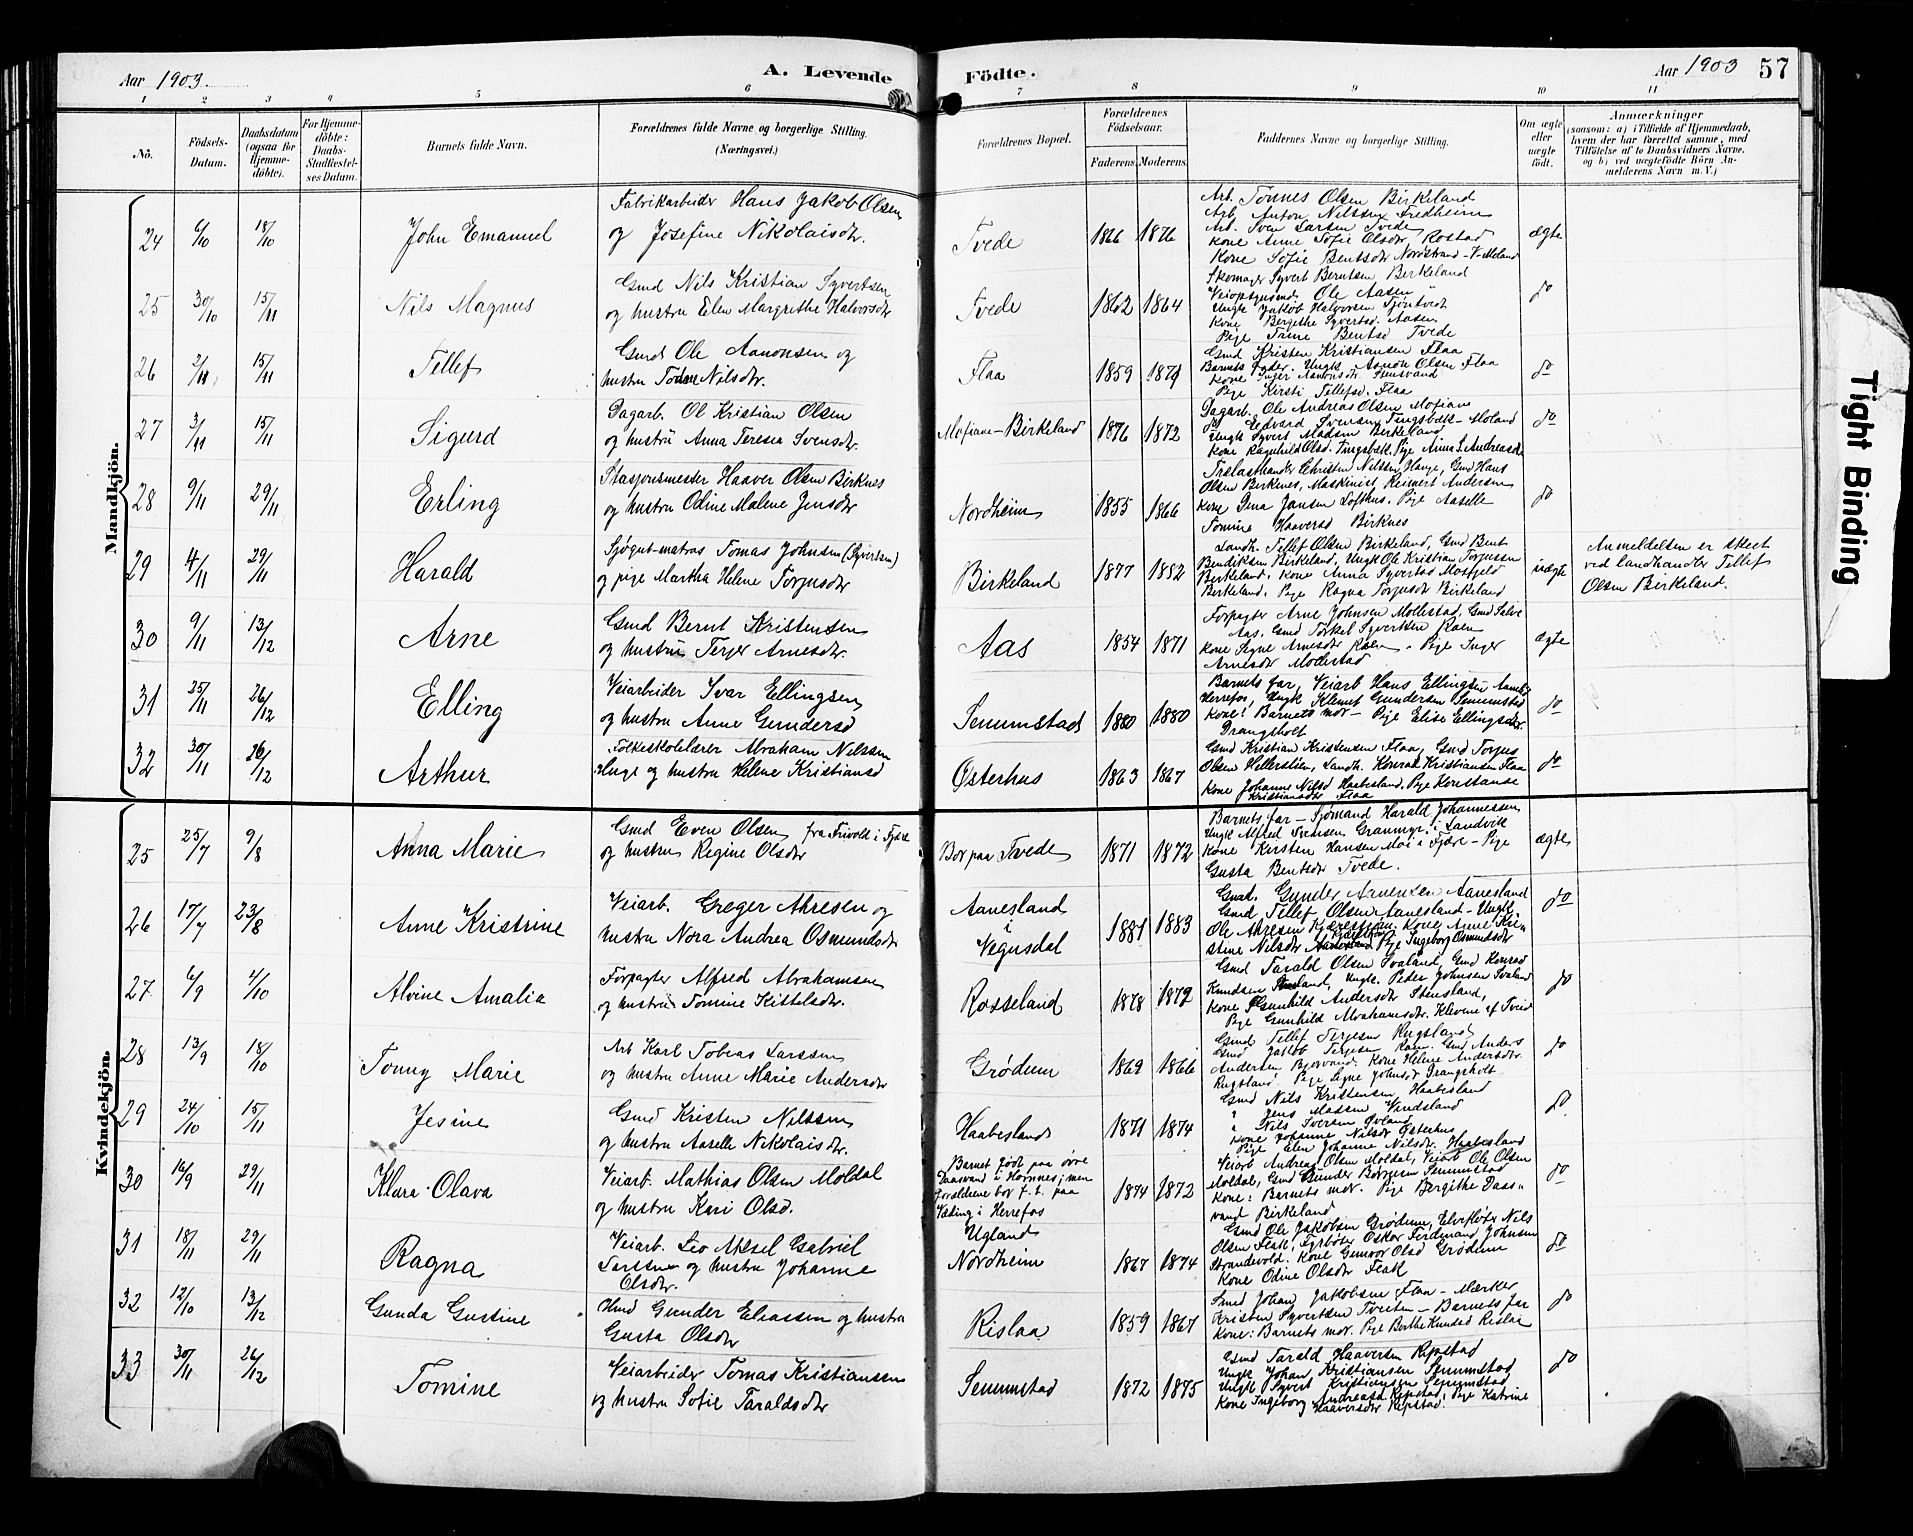 Aar 1903. A. Levende Födte. Aar 1903 57
1 2 3 4 5 6 7 8 9 10 11
No.
Födsels-Datum.
Daabsdatum (ogsaa for Hjemme-döbte).
For Hjemme-döbte: Daabs-Stadfæstel-ses Datum.
Barnets fulde Navn.
Forældrenes fulde Navne og borgerlige Stilling. (Næringsvei.)
Forældrenes Bopæl.
Forældrenes Födselsaar.
Faderens. Moderens.
Faddernes Navne og borgerlige Stilling.
Om ægte eller uægte födt.
Anmærkninger
(saasom: a) i Tilfælde af Hjemmedaab,
hvem der har forrettet samme, med
Tilföielse af to Daabsvidners Navne.
og b) ved uægtefödte Börn An-
melderens Navn m. V.)
Mandkjön.
24 6/10 18/10 John Emanuel
Fabrikarbeider Hans Jakob Olsen
og Josefine Nikolaisdtr.
Tvede 1866 1876
Arb. Tønnes Olsen Birkeland
Arb. Anton Nilssen Fredheim
Art. Sven Larsen Tvede
Kone Anne Sofie Olsdtr, Rostad
Kone Sofie Bentsdtr Nordstrand - V-Moland
ægte
25 30/10 15/11 Nils Magnus
Gmd Nils Kristian Syvertsen
og hustru Elen Margrethe Halvorsdtr
Tvede 1862 1864
Skomager Syvert Berntsen Birkeland
Veiopsynsmd. Ole Aasen
Ungk Jakob Halvorsen Tjøntvedt
Kone Bergithe Syvertsd. Aasen
Pige Trine Bentsd Tvede
do
26 2/11 15/11 Tellef
Gmd Ole Aanonsen og
hustru Tomine Nilsdtr.
Flaa 1859 1871
Gmd Kristen Kristiansen Flaa
Barnets Fader. Ungk Aanon Olsen Flaa
Kone Inger Aanonsdtr
Pige Kirsti Tellefsd. Flaa
do
27 3/11 15/11 Sigurd
Dagarb. Ol Kristian Olsen
og hustru Anna Teresia Svensdtr.
Mofiane - Birkeland 1876 1872
Dagarb. Ole Andreas Olsen Mofiane
do Edvard Svensen Tingsbæk - Moland
Ungk Syvert Madsen Birkeland
Kone Ragnhild Olsd. Tingsbæk. Pige Anna S. Andreasdtr
do
28 9/11 29/11 Erling
Stasjonsmester Haaver Olsen Birknes
og hustru Odine Malene Jensdtr
Nordheim 1855 1866
Trelasthandler Christen Nilssen Hauge, Gmd Hans
Olsen Birkenes, Maskinist Reinert Andersen
Kone Dina Jansen Lofthus. Pige Aaselle
Tomine Haaversd Birknes
do
29 4/11 29/11 Harald
Sjøgut-matros Tomas Johnsen (Syvertsen)
og pige Martha Helene Torjusdtr
Birkeland 1877 1882
Landh. Tellef Olsen Birkeland, Gmd Bent
Bendiksen Birkeland, Ungk Ole Kristian Torjussen
Birkeland. Kone Anna Syvertsd Mosfjeld
Birkeland. Pige Ragna Torjusdtr Birkeland
uægte
Anmeldelsen er skeet
ved landhandler Tellef
Olsen Birkeland.
30 9/11 13/12 Arne
Gmd Bernt Kristensen
og hustru Terjer Arnesdtr.
Aas 1854 1871
Forpagter Arne Johnsen Mollestad. Gmd Salve
Aas. Gmd Torkel Syvertsen Roen
Kone Signe Arnesdtr Roen. Pige Inger
Arnesdtr Mollestad
ægte
31 25/11 26/12 Elling
Veiarbeider Ivar Ellingsen
og hustru Anne Gundersd
Senumstad 1880 1880
Barnets far, Veiarb Hans Ellingsen
Herrefos, Ungk Klemet Gundersen Senumstad
Kone: Barnets mor - Pige Elise Ellingsdtr
Drangsholt
do
32 30/11 26/12 Arthur
Folkeskolelærer Abraham Nilssen
Huge og hustru Helene Kristiansd
Østerhus 1863 1867
Gmd Kristian Kristensen Flaa, Gmd Torjus
Olsen Hellerslien, Landh. Konrad Kristiansen Flaa
Kone Johanne Nilsd Haabesland. Pige Konstanse
Kristiansdtr Flaa
do
Kvindekjön.
25 25/7 9/8 Anna Marie
Gmd Even Olsen fra Frivold i Fjære
og hustru Regine Olsdtr
Bor paa Tvede 1871 1872
Barnets far - Sjømand Harald Johannessen
Ungk Alfred Svensen Granmyr i Landvik
Kone Kirsten Hansen Moi i Fjære - Pige
Gusta Bentsdtr Tvede.
ægte
26 17/7 23/8 Anne Kristine
Veiarb. Greger Akresen og
hustru Nora Andrea Osmundsdtr
Aanesland
i
Vegusdal
1881 1883
Gmd. Gunder Arnensen Aanesland
Gmd Tellef Olsen Aanesland - Ungk.
Ole Akresen . Kone Anne Kri-
stine Nilsdtr Pige Ingeborg Osmundsdtr
do
27 6/9 4/10 Alvine Amalie
Forpagter Alfred Abrahamsen
og hustru Tomine Kittelsdtr.
Rosseland 1878 1872
Gmd Tarald Olsen Svaland, Gmd Konrad
Knudsen , Ungk. Peder Johnsen Svaland
Kone Gunhild Andersdtr Stensland,
Pige Gunhild Abrahamsdtr. Klevene af Tveid
do
28 13/9 18/10 Tonny Marie
Arb Karl Tobias Larssen
og hustru Anne Marie Andersdtr
Grødum 1869 1866
Gmd Tellef Terjesen Rugsland
Gmd Jakob Terjesen Roen. Gmd Anders
Andersen Bjorvand. Kone Helene Andersdtr.
Rugsland Pige Signe Johnsd Drangsholt
do
29 24/10 15/11 Jesine
Gmd Kristen Nilssen
og hustru Aaselle Nikolaisdtr.
Haabesland 1871 1874
Gmd Nils Kristensen Haabesland
" Jens Madsen Vindsland
" Nils Iversen Øvland
Kone Johanne Nilsdtr Østerhus
Pige Elen Johanne Nilsdtr. Haabesland
do.
30 16/9 29/11 Klara Olava
Veiarb. Mathias Olsen Moldal
og hustru Kari Olsd.
Barnet født paa øvre
Daasvand i Hornnes, men
foreldrene bor f. t. paa
Væting i Herrefos
1874 1872
Veiarb Andreas Olsen Moldal, Veiarb Ole Olsen
Moldal, Gmd Gunder Børjesen Senumstad
Kone: Barnets mor. Pige Bergithe Daas-
vand Birkeland
do
31 18/11 29/11 Ragna
Veiarb. Leo Aksel Gabriel
Larssen og hustru Johanne
Olsdtr.
Ugland
Nordheim
1867 1874
Gmd Ole Jakobsen Grødum, Elvefløter Nils
Olsen Flak, Fyrbøter Oskar Ferdinand Johnsen
Strandevold. Kone Gunvor Olsd Grødum
Kone Odine Olsdtr Flak
do
32 12/10 13/12 Gunda Gustine
Gmd Gunder Eliassen og hustru
Gusta Olsdtr
Rislaa 1859 1867
Smed Johan Jakobsen Flaa - Mærker
Kristen Syvertsen Tveiten - Barnets far
Kone: Barnets mor. Pige Berthe Knudsd Rislaa
do
33 30/11 26/12 Tomine
Veiarbeider Tomas Kristianssen
og hustru Sofie Taraldsdtr
Senumstad 1872 1875
Gmd Tarald Haaversen Ripstad
Ungk Johan Kristiansen Senumstad
Ungk Syvert Kristiansen Senumstad
Kone Ingeborg Andreasd Ripstad, Pige Katrine
Haaversdtr Ripstad.
do
Tight Binding